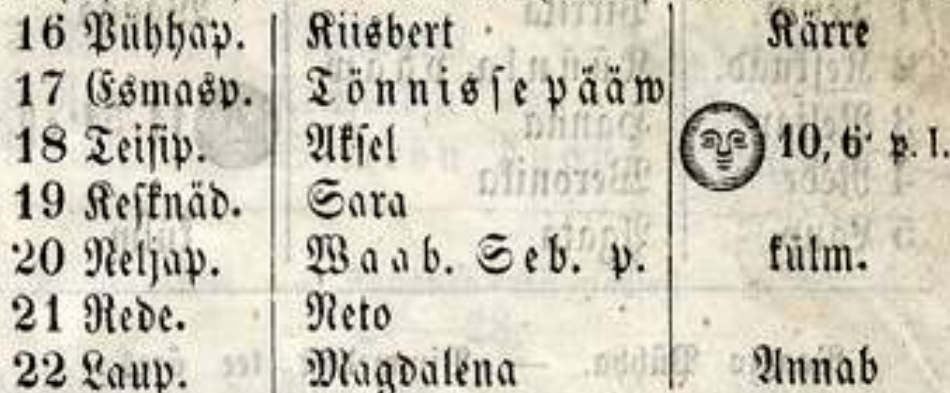 16 Pühhap. Kiisbert Kärre
17 Esmasp. Tönnisse pääw
18 Teisip. Aksel 10,6' p. l.
19 Kesknäd. Sara
20 Neljap. Waab. Seb. p. külm.
21 Rede. Neto
22 Laup. Magdalena Annab